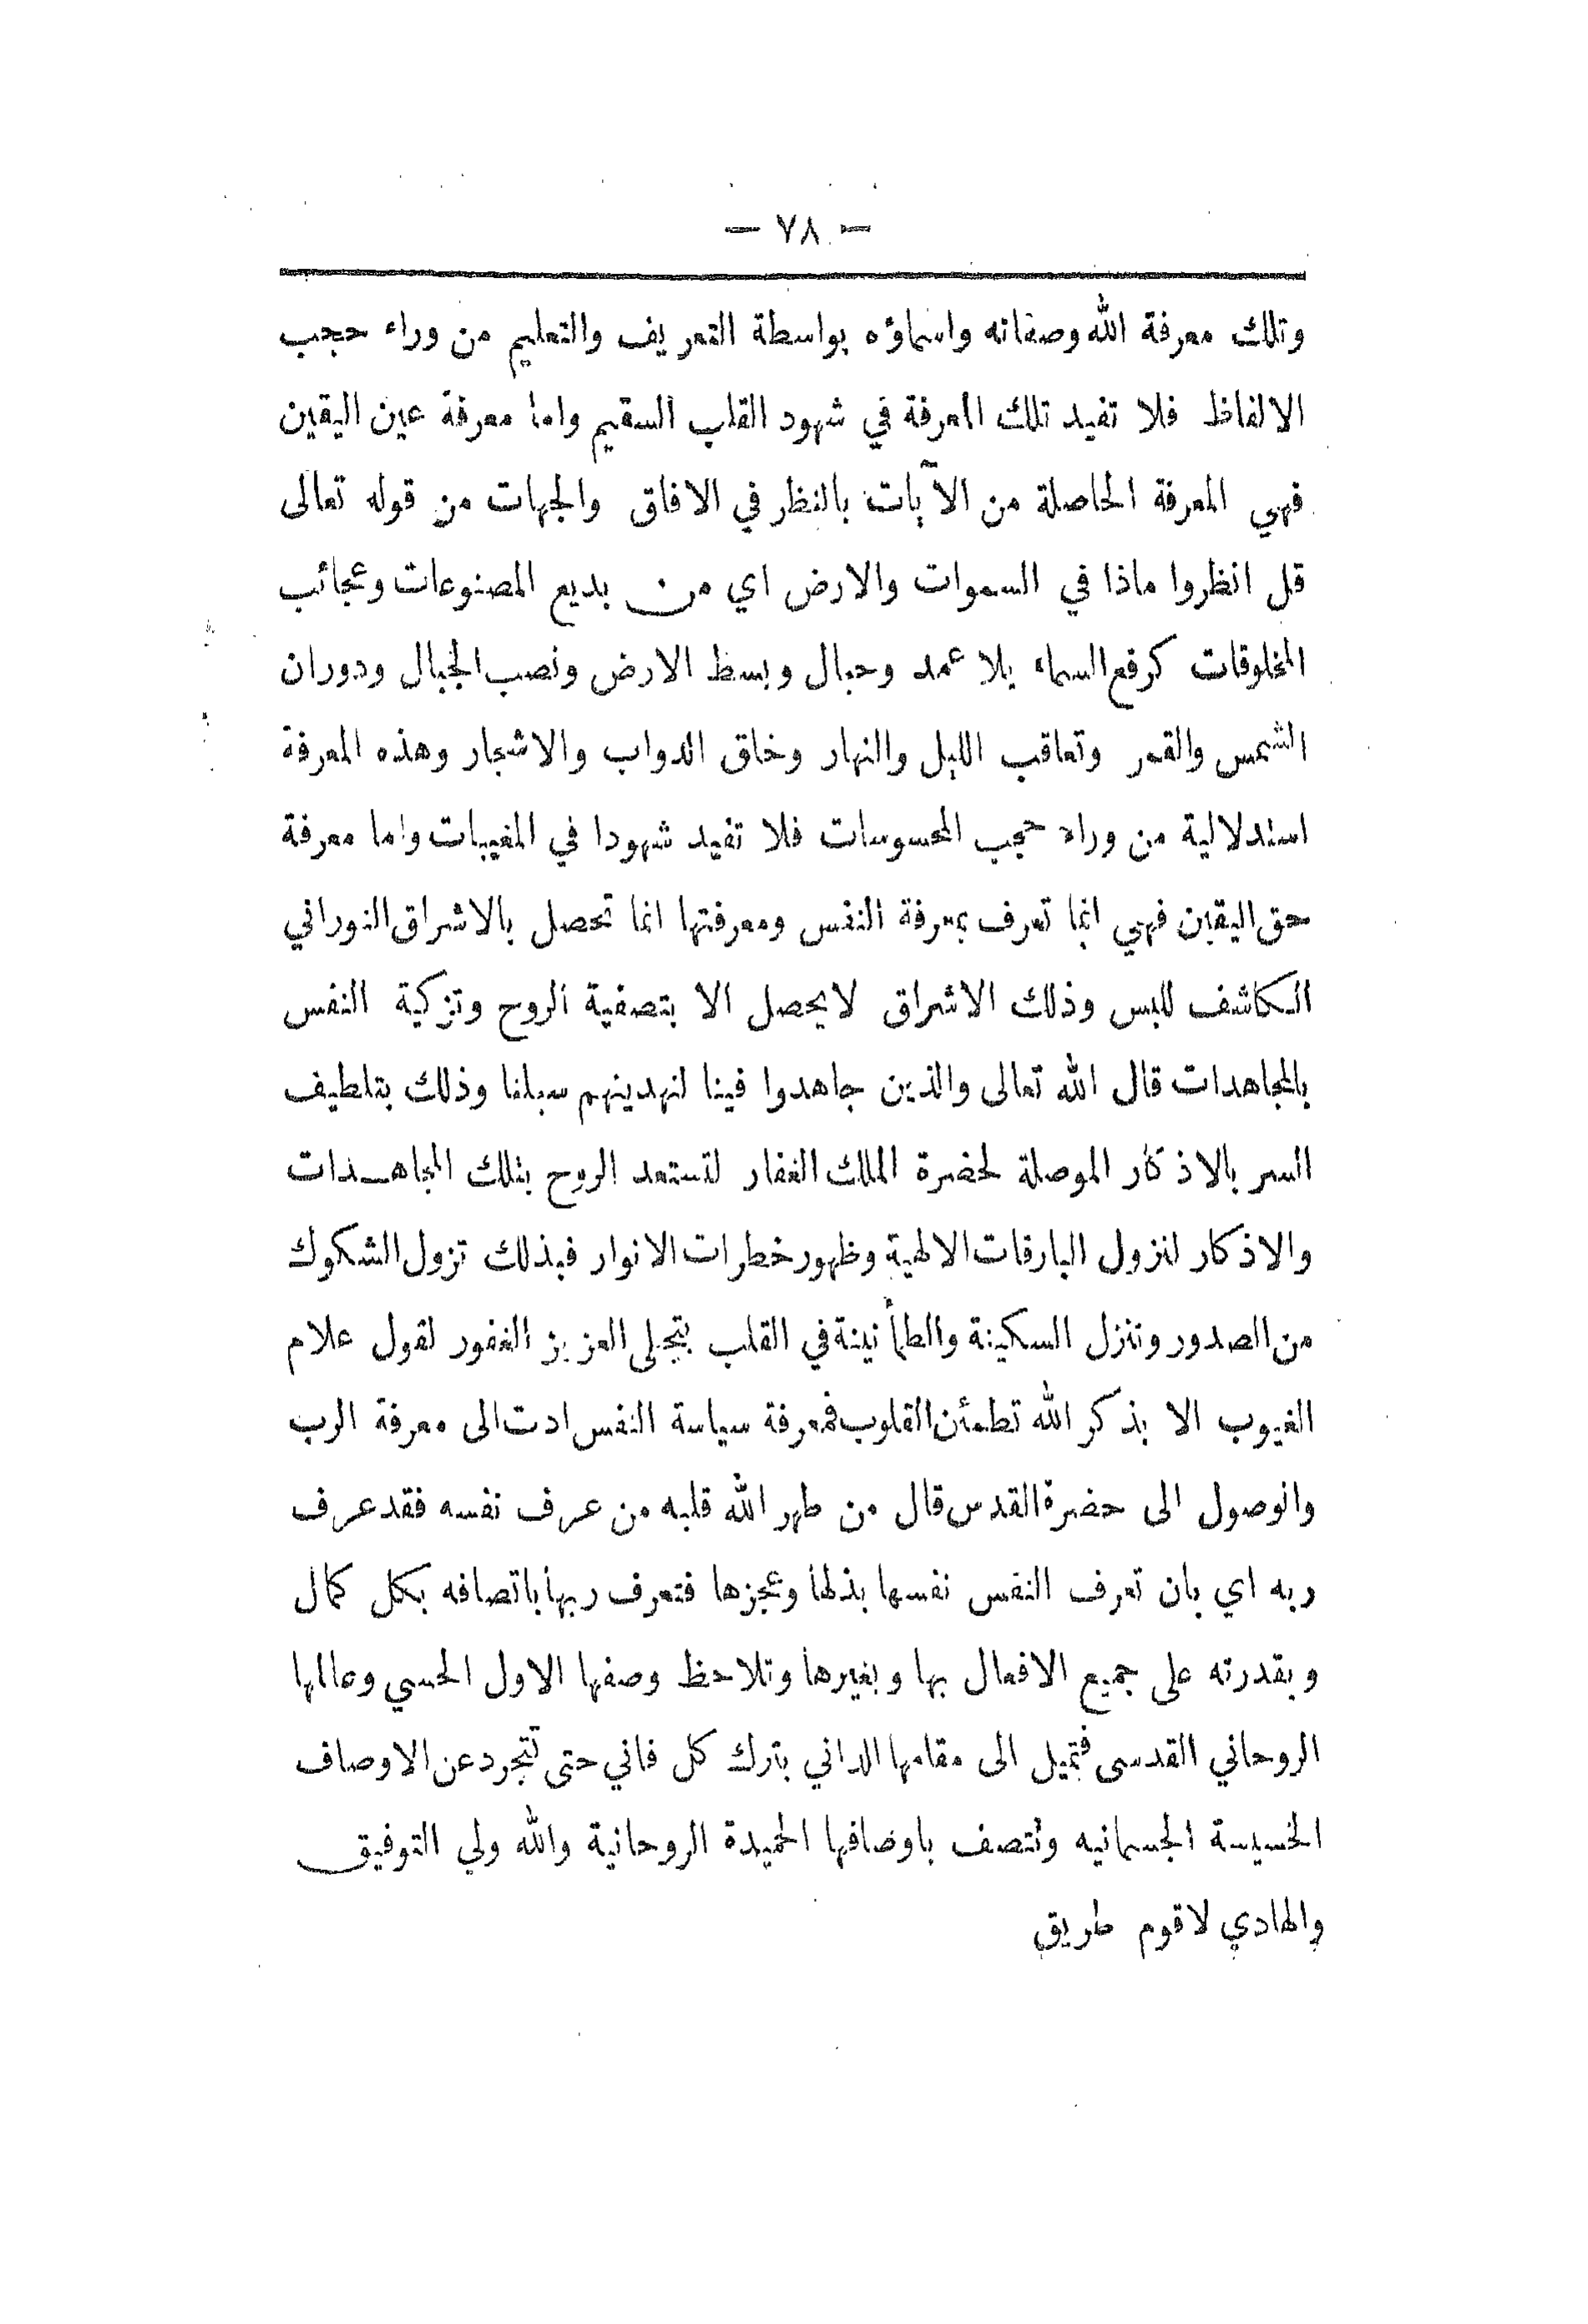 — ٧٨ —
وتلك معرفة الله وصفاته واسماؤه بواسطة التعريف والتعليم من وراء حجب
الالفاظ فلا تفيد تلك المعرفة في شهود القلب السقيم واما معرفة عين اليقين
فهي المعرفة الحاصلة من الآيات بالنظر في الافاق والجهات من قوله تعالى
قل انظروا ماذا في السموات والارض اي من بديع المصنوعات وعجائب
المخلوقات كرفع السماء بلا عمد وحبال وبسط الارض ونصب الجبال ودوران
الشمس والقمر وتعاقب الليل والنهار وخلق الدواب والاشجار وهذه المعرفة
استدلالية من وراء حجب المحسوسات فلا تفيد شهودا في المغيبات واما معرفة
حق اليقين فهي انما تعرف بمعرفة النفس ومعرفتها انما تحصل بالاشراق النوراني
الكاشف للبس وذلك الاشراق لا يحصل الا بتصفية الروح وتزكية النفس
بالمجاهدات قال الله تعالى والذين جاهدوا فينا لنهدينهم سبلنا وذلك بتلطيف
السر بالاذكار الموصلة لحضرة الملك الغفار لتستعد الروح بتلك المجاهدات
والاذكار لنزول البارقات الالهية وظهور خطرات الانوار فبذلك تزول الشكوك
من الصدور وتنزل السكينة والطأنينة في القلب بتجلى العزيز الغفور لقول علام
الغيوب الا بذكر الله تطمئن القلوب فمعرفة سياسة النفس ادت الى معرفة الرب
والوصول الى حضرة القدس قال من طهر الله قلبه من عرف نفسه فقد عرف
ربه اي بان تعرف النفس نفسها بذلها وعجزها فتعرف ربها باتصافه بكل كمال
وبقدرته على جميع الافعال بها وبغيرها وتلاحظ وصفها الاول الحسي وعالمها
الروحاني القدسى فتميل الى مقامها الداني بترك كل فاني حتى تتجرد عن الاوصاف
الخسيسة الجسمانيه وتتصف باوصافها الحميدة الروحانية والله ولي التوفيق
والهادي لاقوم طريق